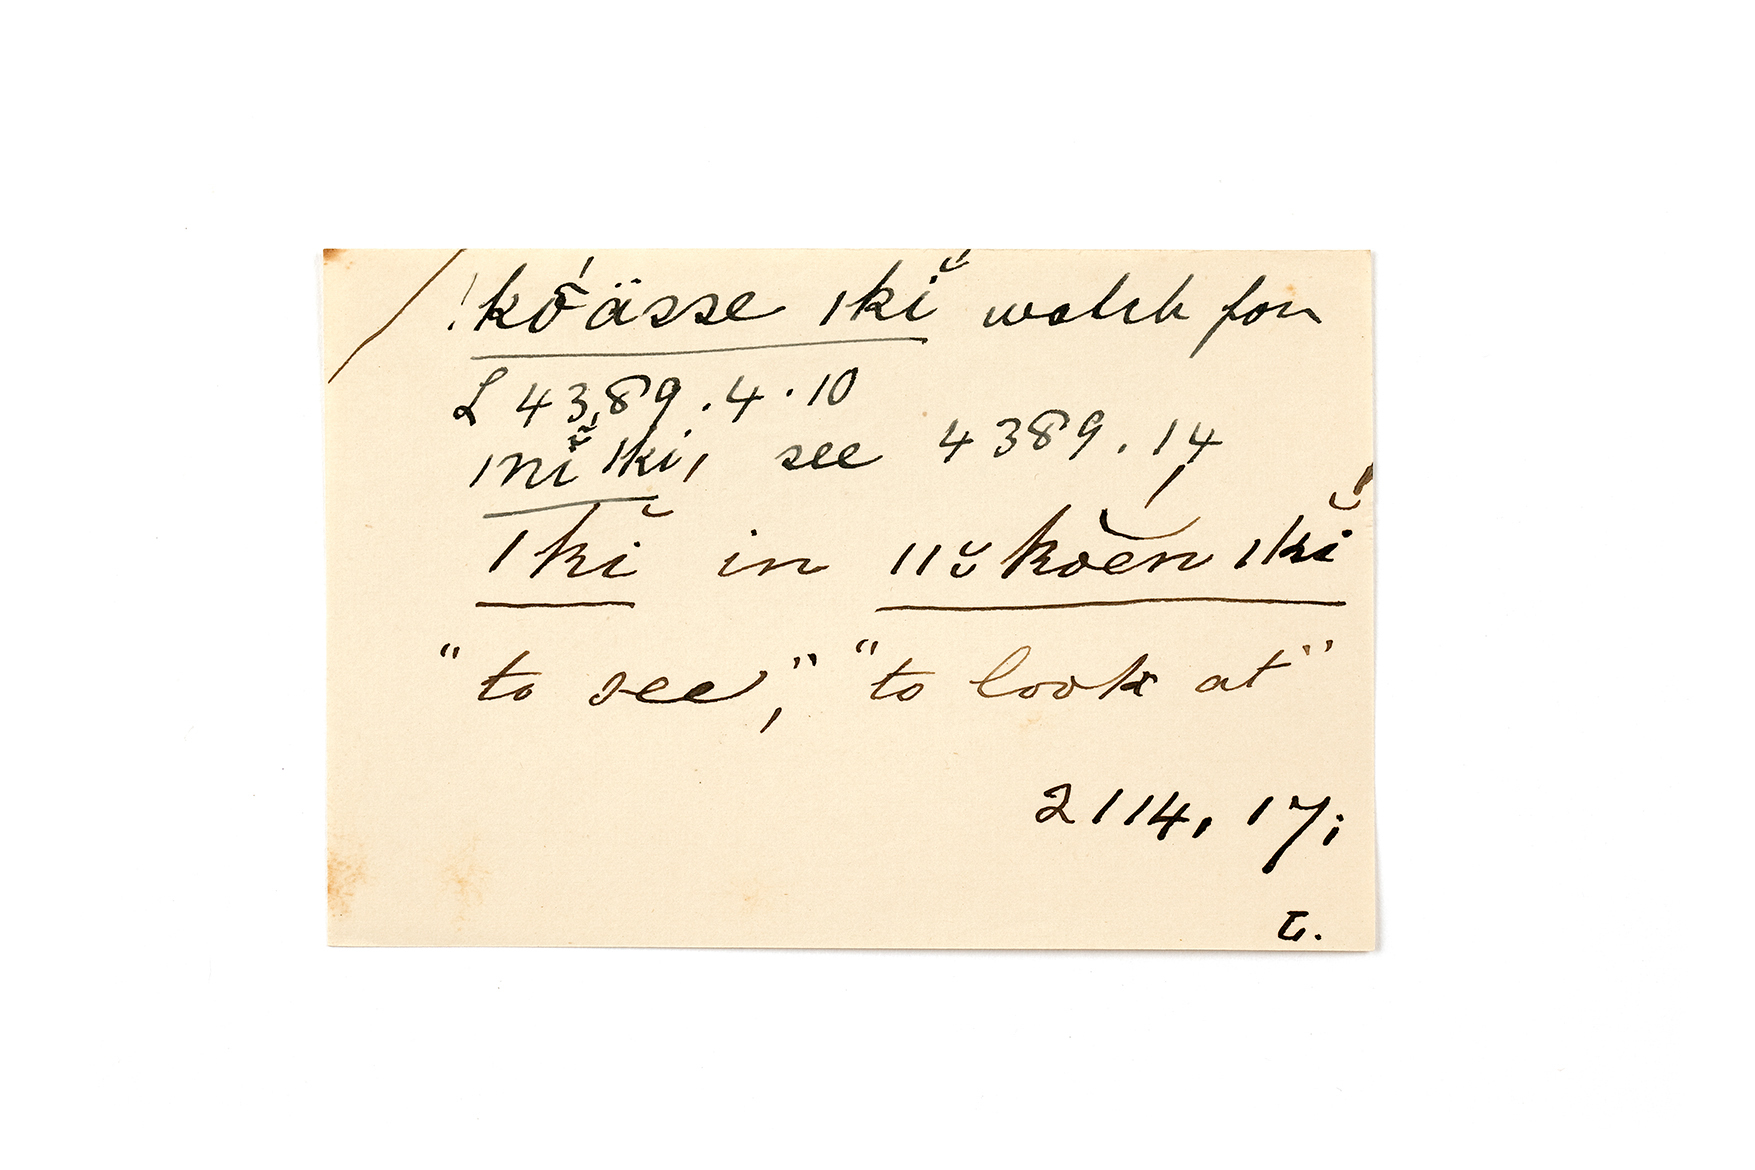 !kṓässe |kĭ watch for
L 4389.4.10
|nĭ |ki, see 4389.14
|kĭ in ||ŭkoèn |kĭ
"to see," "to look at"
2114, 17;
L.